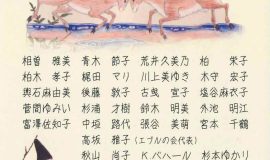 相曽 雅美 青木 節子 荒井久美乃 柏 栄子
柏木 孝子 梶田 マリ 川上美ゆき 木守 宏子
輿石麻由美 後藤 敦子 古曳 宣子 塩谷麻衣子
菅間ゆみい 杉浦 才樹 鈴木 明美 外池 明江
富澤佐知子 中垣 路代 張谷 美萌 宮本 千鶴
高坂 雅子(エブルの会代表)
秋山 尚子 K.バハール 杉本ゆかり